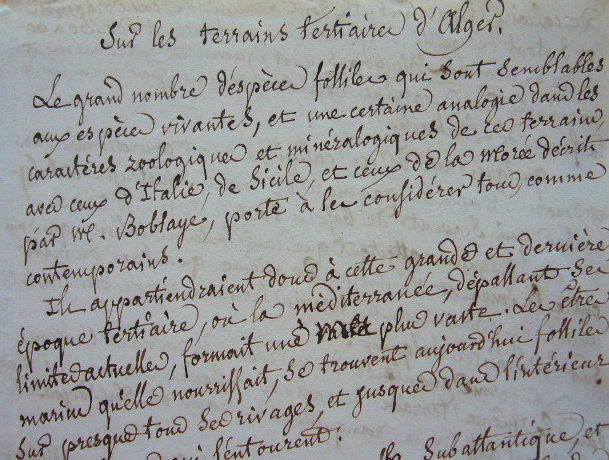 Sur les terrains tertiaires d'Alger.
Le grand nombre d'espèces fossiles qui sont semblables
aux espèces vivantes, et une certaine analogie dans les
caractères zoologiques et minéralogiques de ces terrains,
avec ceux d'Italie, de Sicile, et ceux de la Morée décrits
par M. Boblaye, porte à les considérer tous comme
contemporains.
Ils appartiendraient donc à cette grande et dernière
époque tertiaire, où la méditerranée, dépassant ses
limites actuelles, formait une plus vaste. Les êtres
marins qu'elle nourrissait, se trouvent aujourd'hui fossiles
sur presque tous ses rivages, et jusques dans l'intérieur
qui l'entourent.
Subatlantique, et